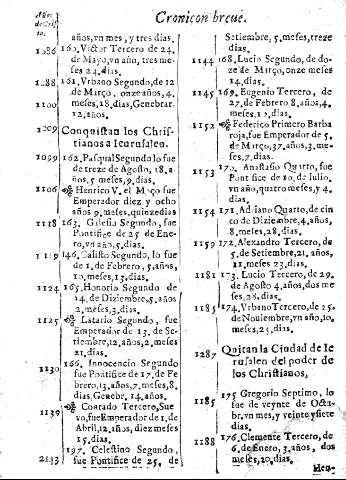 Cronicon breue.
Años
de Cris
to.
años, vn mes, y tres dias.
1086 160. Victor Tercero de 24. de
Mayo, vn año, tres me-
ses 24. dias.
1088 161. Vrbano Segundo, de 12
de Março, onze años, 4.
1100 meses, 18. dias, Genebrar.
12. años.
1009 Conquistan los Chris-
tianos a Ierusalen.
1099 162. Pasqual Segundo lo fue
de treze de Agosto, 18. a-
ños, 5 meses, 9. dias.
1106 Henrico V. el Moço fue
Emperador diez y ocho
años 9. meses, quinze dias
1118 163. Gelasio Segundo, fue
Pontifice de 25 de Ene-
ro, vn año, 5. dias.
1119 146. Calisto Segundo, lo fue
de 1. de Febrero, 5. años,
10. meses, 13. dias.
1124 165. Honorio Segundo de
14. de Diziembre, 5. años
2. meses, 3. dias.
1125 Lotario Segundo, fue
Emperador de 13. de Se-
tiembre, 12. años, 2. meses
21. dias.
1130 166. Innocencio Segundo
fue Pontifice de 17. de Fe-
brero, 13. años, 7. meses, 8.
dias, Genebr, 14. años.
1139 Conrado Tercero, Sue
vo, fue Emperador de 1. de
Abril, 12. años, diez meses
15. dias.
197. Celestino Segundo,
fue Pontifice de 25. de
Setiembre, 5. meses, treze
dias.
1144 168. Lucio Segundo, de do-
ze de Março, onze meses
14. dias.
1145 169. Eugenio Tercero, de
27. de Febrero 8. años, 4.
meses, 12. dias.
1152 Federico Primero Barba
roja, fue Emperador de 5.
de Março, 37. años, 3. me-
ses, 7. dias.
1153 170. Anastasio Quarto, fue
Pontifice de 10. de Iulio.
vn año, quatro meses, y 4.
dias.
1154 171. Adriano Quarto, de cin
co de Diziembre, 4. años,
8. meses, 28. dias.
1159 172. Alexandro Tercero, de
5. de Setiembre, 21. años,
11. meses 23. dias.
1181 173. Lucio Tercero, de 29.
de Agosto 4. años, dos me
ses, 28. dias.
1185 174. Vrbano Tercero, de 25.
de Nouiembre, vn año, 10.
meses, 25. dias.
1287 Quitan la Ciudad de Ie
rusalen del poder de
los Christianos,
1185 175 Gregorio Septimo, lo
fue de veynte de Octu-
bre, vn mes, y veinte y siete
dias.
1188 176. Clemente Tercero, de
6. de Enero, 3. años, dos
meses, 20. dias.
Hen-